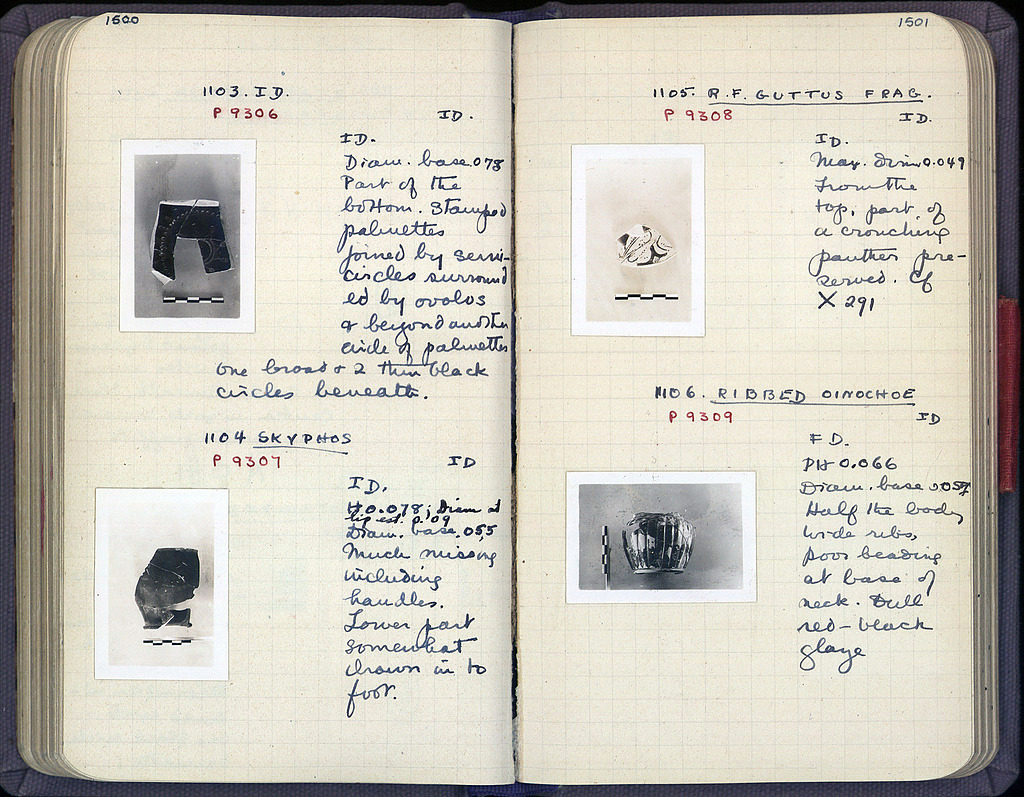 1500
1103. ID.
P 9306 ID.
ID.
Diam. base .078
Part of the
bottom. Stamped
palmettes
joined by semi-
circles surround
ed by ovolos
& beyond another
circle of palmettes
One broad & 2 thin black
circles beneath.
1104 SKYPHOS
P 9307 ID
ID.
H. 0.078; Diam at
lip est. 0.09
Diam. base .055
Much missing
including
handles.
Lower part
somewhat
drawn in to
foot.
1501
1105. R.F. GUTTUS FRAG.
P 9308 ID.
ID.
Max. Dim 0.049
From the
top, part of
a crouching
panther pre-
served. Cf
X 291
1106. RIBBED OINOCHOE
P 9309 ID
FD.
PH 0.066
Diam. base 0.057
Half the body,
wide ribs,
poor beading
at base of
neck. Dull
red-black
glaze